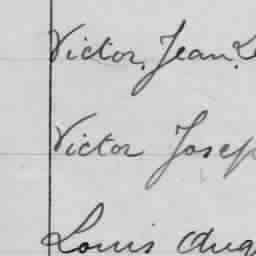 Victor, Jean, L
Victor Josep
Louis Aug